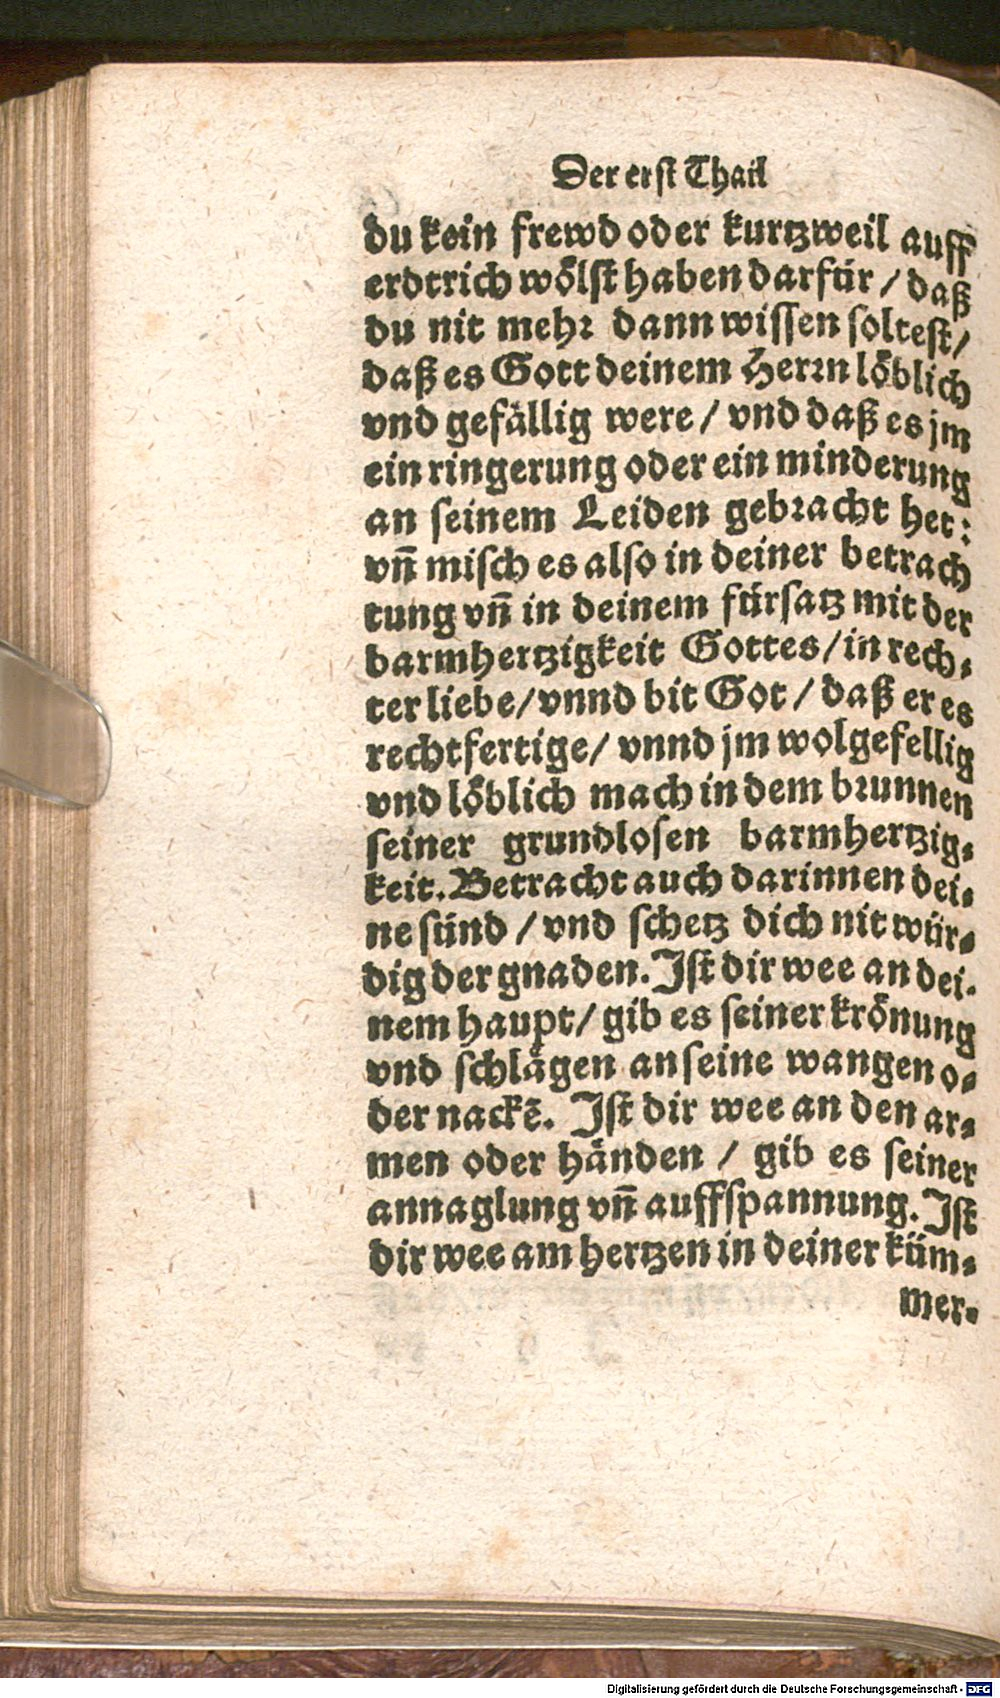 Der erst Thail
du kein frewd oder kurtzweil auff
erdtrich wölst haben darfür / daß
du nit mehr dann wissen soltest /
daß es Gott deinem Herrn löblich
vnd gefällig were / vnd daß es jm
ein ringerung oder ein minderung
an seinem Leiden gebracht het:
vñ misch es also in deiner betrach
tung vñ in deinem fürsatz mit der
barmhertzigkeit Gottes / in rech⸗
ter liebe / vnnd bit Got / daß er es
rechtfertige / vnnd jm wolgefellig
vnd löblich mach in dem brunnen
seiner grundlosen barmhertzig⸗
keit. Betracht auch darinnen dei⸗
ne sünd / vnd schetz dich nit wür⸗
dig der gnaden. Ist dir wee an dei⸗
nem haupt / gib es seiner krönung
vnd schlägen an seine wangen o⸗
der nackẽ. Ist dir wee an den ar⸗
men oder händen / gib es seiner
annaglung vñ auffspannung. Ist
dir wee am hertzen in deiner küm⸗
mer⸗
Digitalisierung gefördert durch die Deutsche Forschungsgemeinschaft - DFG